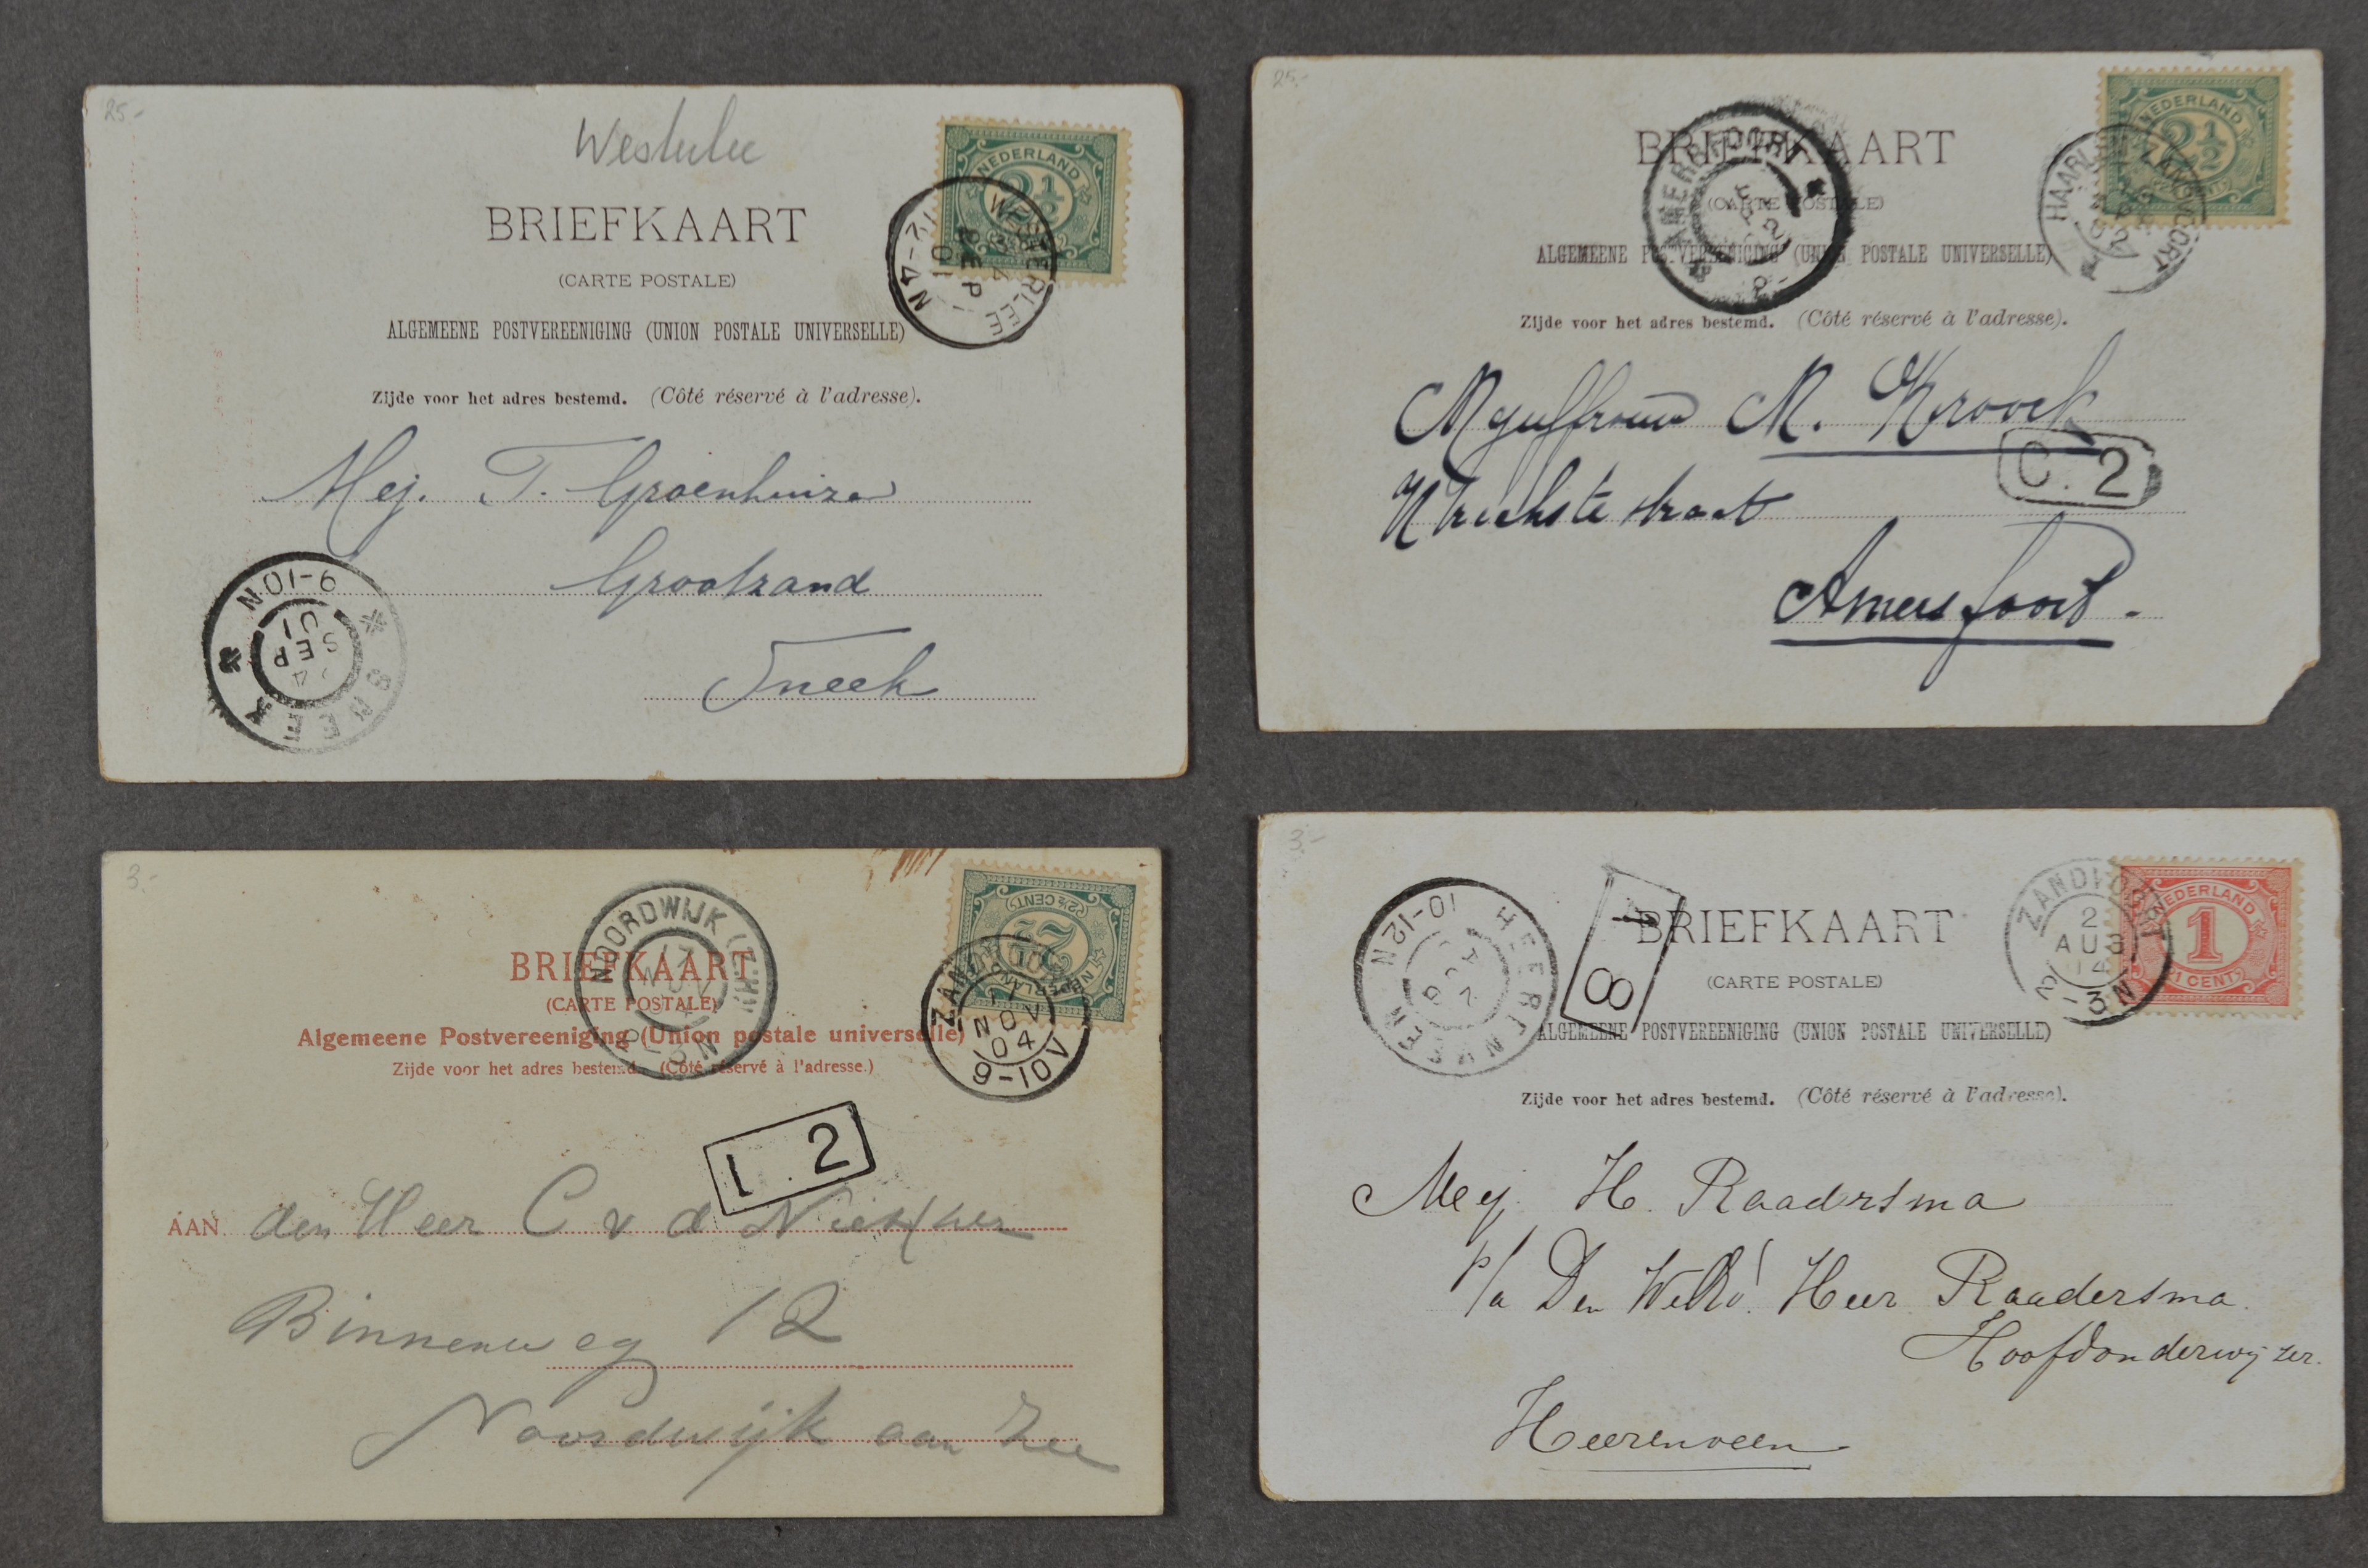 25.-
Westerlee
NEDERLAND
2½
BRIEFKAART
WESTERLEE
24
SEP
01
12-4N
(CARTE POSTALE)
ALGEMEENE POSTVEREENIGING (UNION POSTALE UNIVERSELLE)
Zijde voor het adres bestemd. (Côté réservé à l'adresse).
Mej. T. Groenhuizen
Grootzand
Sneek
9-10N
SEP
01
SNEEK
25.-
NEDERLAND
2½
BRIEFKAART
AMERSFOORT
HAARLEM
ZANDVOORT
(CARTE POSTALE)
ALGEMEENE POSTVEREENIGING (UNION POSTALE UNIVERSELLE)
Zijde voor het adres bestemd. (Côté réservé à l'adresse).
Mejuffrouw M. Kroock
C. 2
Utrechtstestraat
Amersfoort.
3.-
NEDERLAND
2½
(2½ CENT)
NOORDWIJK (Z.H)
17
NOV
BRIEFKAART
(CARTE POSTALE)
Algemeene Postvereeniging (Union postale universelle)
Zijde voor het adres bestemd. (Côté réservé à l'adresse.)
17
NOV
04
9-10V
1. 2
AAN den Heer C v d
Binnenweg 12
Noordwijk aan Zee
3.-
NEDERLAND
1
1 CENT
ZANDVOORT
2
AUG
BRIEFKAART
HEERENVEEN
10-12N
8
(CARTE POSTALE)
ALGEMEENE POSTVEREENIGING (UNION POSTALE UNIVERSELLE)
Zijde voor het adres bestemd. (Côté réservé à l'adresse).
Mej. H. Raadersma
p/a Den WelEd! Heer Raadersma.
Hoofdonderwijzer.
Heerenveen